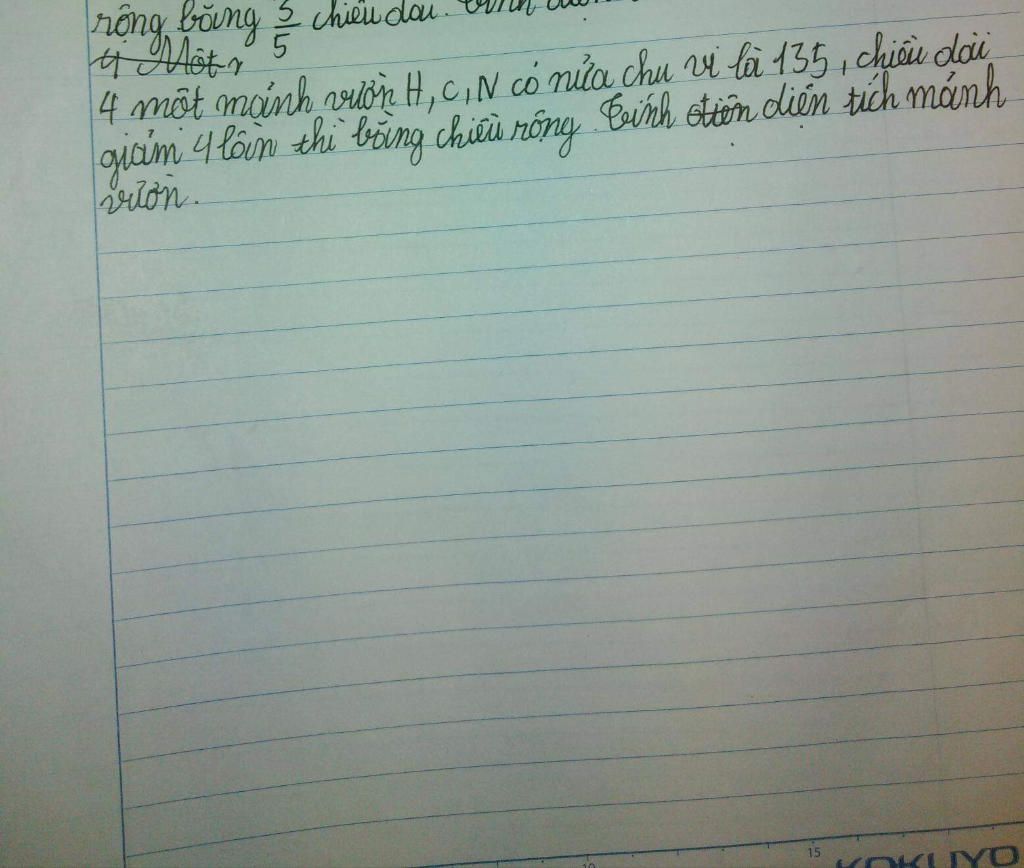 rộng bằng 3/5 chiều dài. Tính
4 Một
4 một mảnh vườn H, C, N có nửa chu vi là 135, chiều dài
giảm 4 lần thì bằng chiều rộng. Tính diện diện tích mảnh
vườn.
10 15 KOKUYO